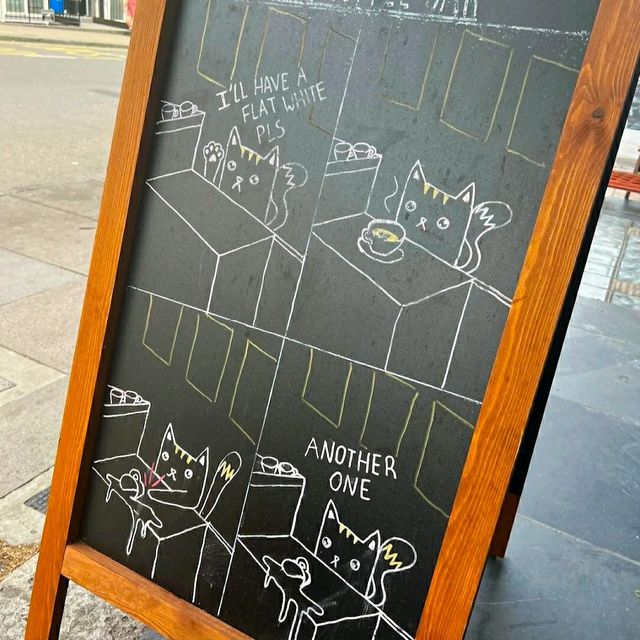 I'LL HAVE A
FLAT WHITE
PLS
ANOTHER
ONE